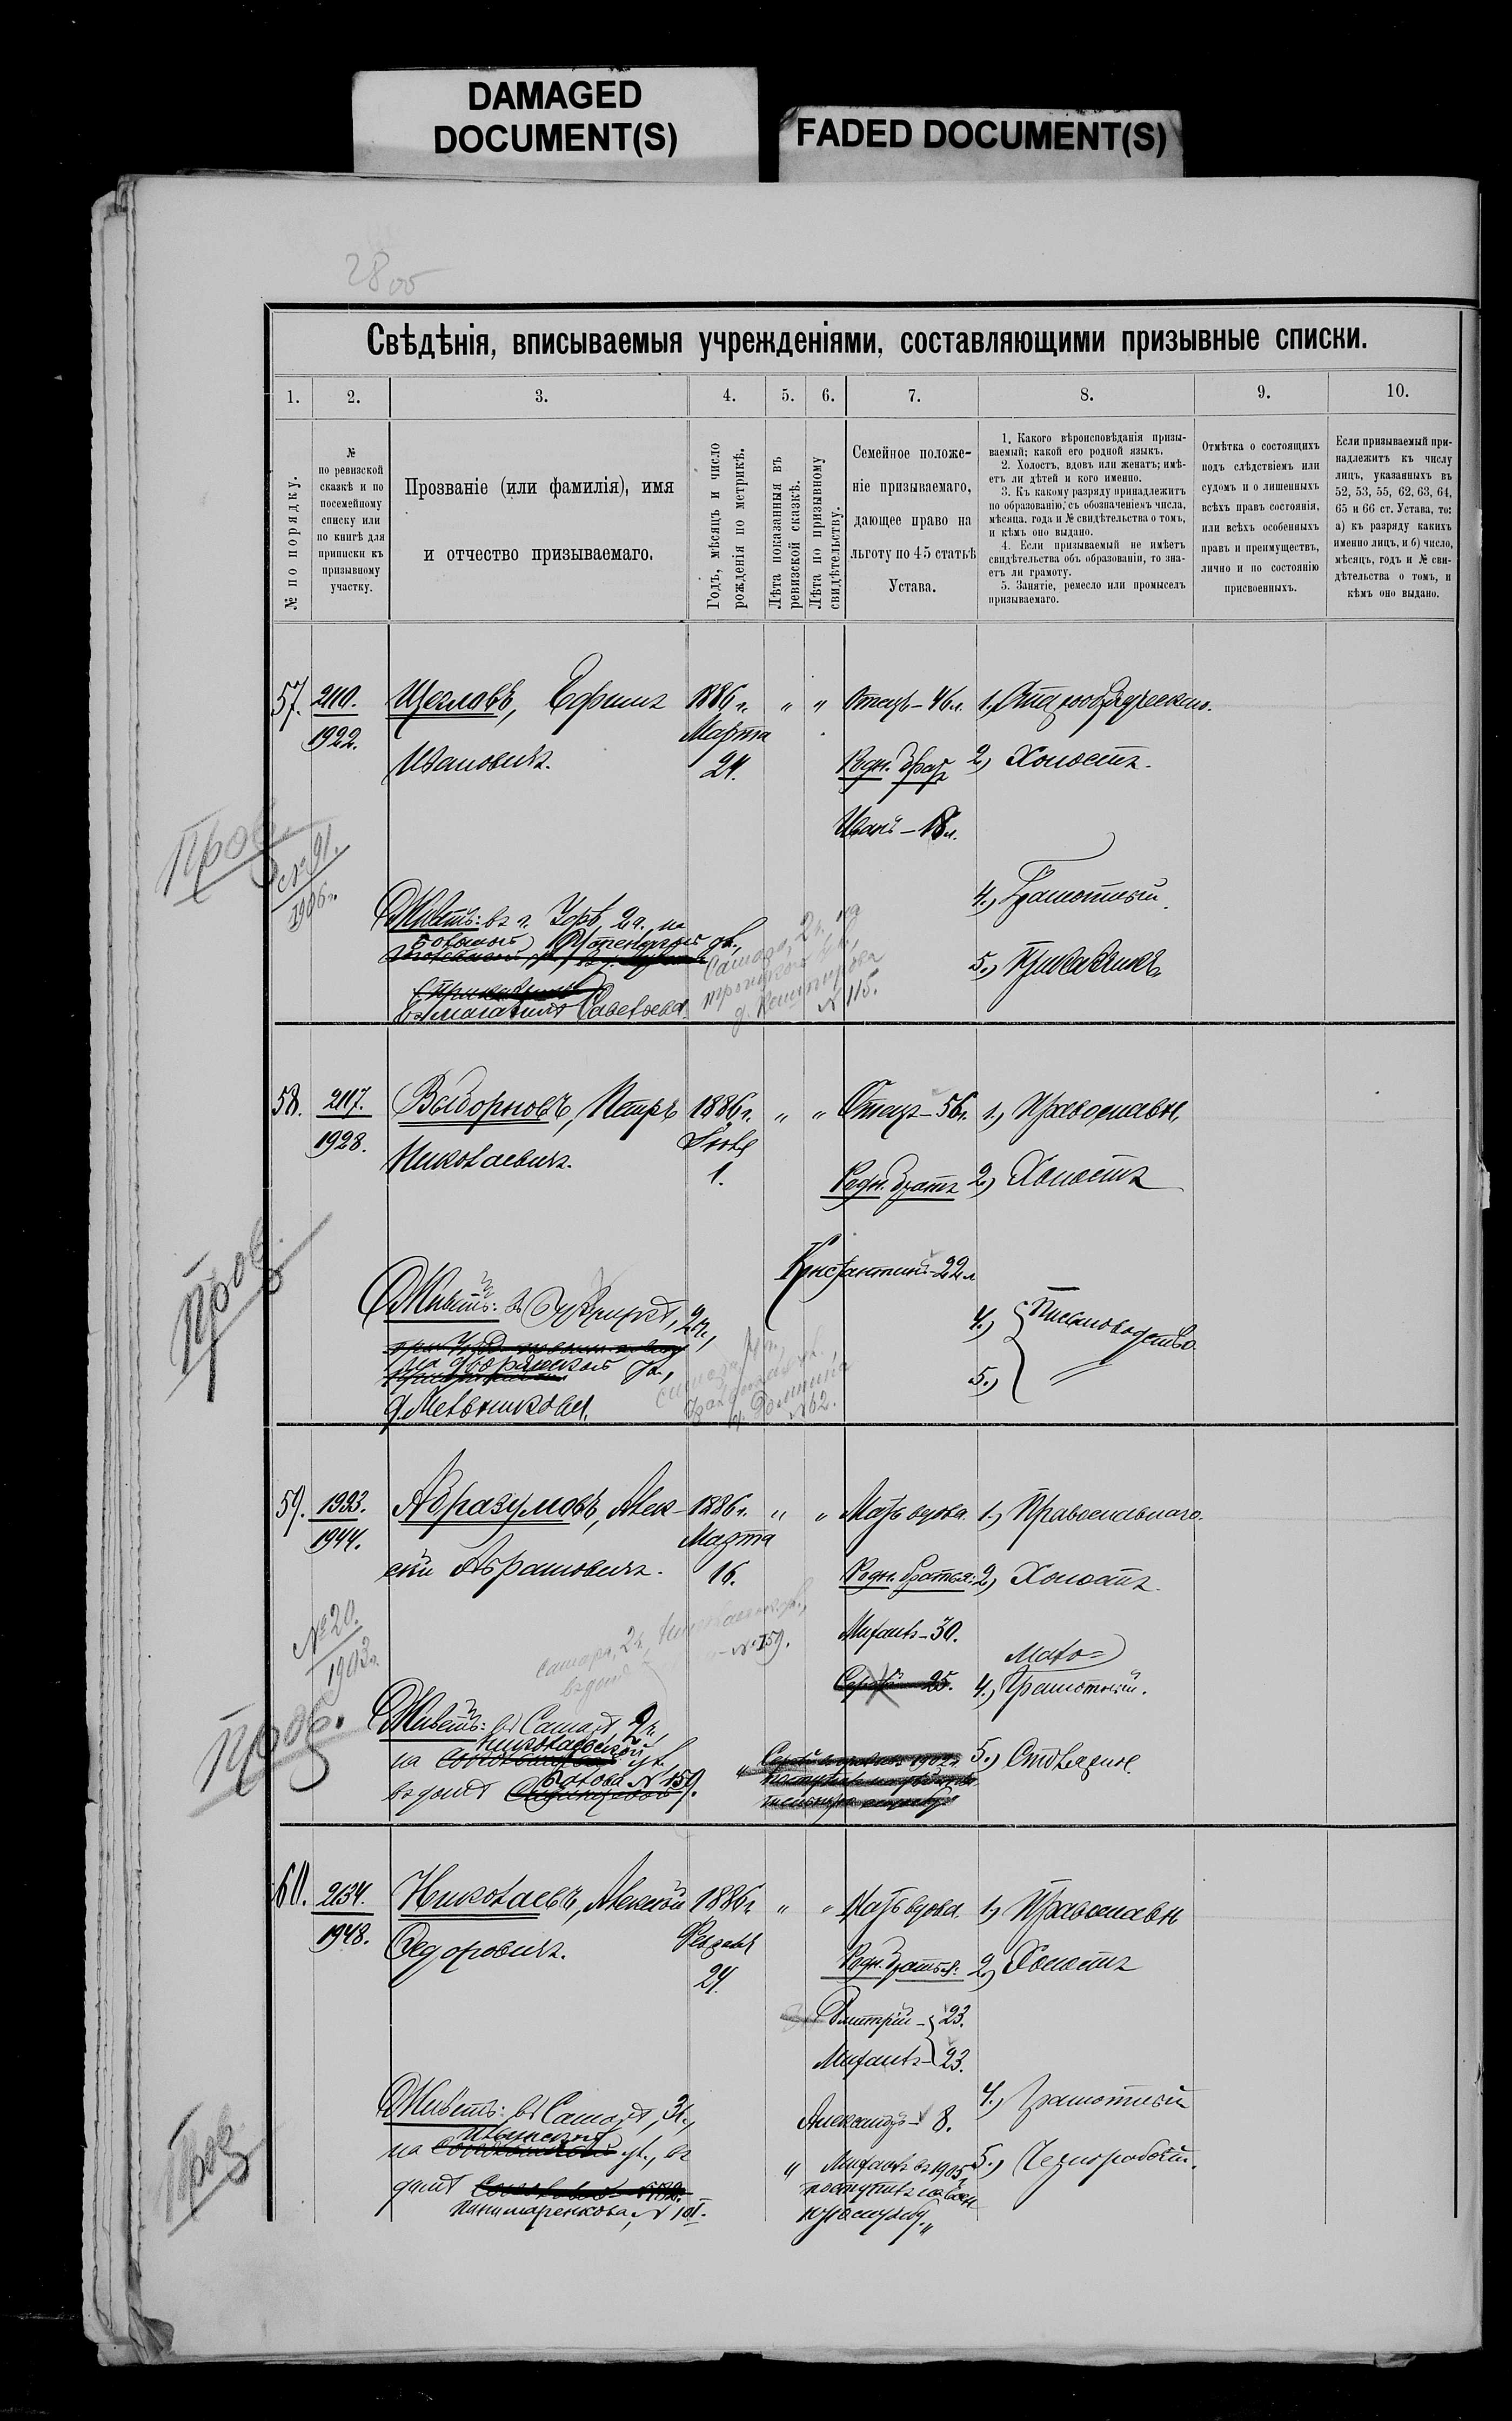 DAMAGED
DOCUMENT(S)
FADED DOCUMENT(S)
2800
Свѣдѣнія, вписываемыя учрежденіями, составляющими призывные списки.
1.
2.
3.
4.
5.
6.
7.
8.
9.
10.
№ по порядку.
№
по ревизской
сказкѣ и по
посемейному
списку или
по книгѣ для
приписки къ
призывному
участку.
Прозваніе (или фамилія), имя
и отчество призываемаго.
Годъ, мѣсяцъ и число
рожденія по метрикѣ.
Лѣта показанныя въ
ревизской сказкѣ.
Лѣта по призывному
свидѣтельству.
Семейное положе-
ніе призываемаго,
дающее право на
льготу по 45 статьѣ
Устава.
1. Какого вѣроисповѣданія призы-
ваемый; какой его родной языкъ.
2. Холостъ, вдовъ или женатъ; имѣ-
етъ ли дѣтей и кого именно.
3. Къ какому разряду принадлежитъ
по образованію, съ обозначеніемъ числа,
мѣсяца, года и № свидѣтельства о томъ,
и кѣмъ оно выдано.
4. Если призываемый не имѣетъ
свидѣтельства объ образованіи, то зна-
етъ ли грамоту.
5. Занятіе, ремесло или промыселъ
призываемаго.
Отмѣтка о состоящихъ
подъ слѣдствіемъ или
судомъ и о лишенныхъ
всѣхъ правъ состоянія,
или всѣхъ особенныхъ
правъ и преимуществъ,
лично и по состоянію
присвоенныхъ.
Если призываемый при-
надлежитъ къ числу
лицъ, указанныхъ въ
52, 53, 55, 62, 63, 64,
65 и 66 ст. Устава, то:
а) къ разряду какихъ
именно лицъ, и б) число,
мѣсяцъ, годъ и № сви-
дѣтельства о томъ, и
кѣмъ оно выдано.
57. 2110. Щегловъ, Ефимъ 1886 г. " " Отецъ - 46 л. 1.
1922. Ивановичъ. Марта 24. Родн. братъ 2) Холостъ.
Иванъ - 18 л.
Пров
№ 91.
1906 г.
4.) Грамотный.
Живетъ: въ г. 2 ч. на
ул.,
5.) Приказчикъ
въ магазинѣ Савельева.
Самара, 2 ч., на
Троицкой ул.,
д. № 115.
58. 2117. Выборновъ, Петръ 1886 г. " " Отецъ - 56 л. 1.) Православн.
1928. Николаевичъ. Іюля 1. Родн. братъ 2.) Холостъ
Константинъ - 22 л
Пров.
Живетъ: въ 2 ч.,
на Дворянской ул.,
д. Мельникова.
4.) Письмоводство
5.)
№ 62.
59. 1993. Абразумовъ, Алек- 1886 г. " " Мать вдова 1.) Православнаго.
1944. сѣй Абрамовичъ. Марта 16. Родн. братья: 2.) Холостъ.
Михаилъ - 30.
Сергѣй - 25.
Мало=
4.) Грамотный.
№ 20.
1903 г.
Самара, 2 ч., Николаевск. ул.,
въ домѣ № 159.
Пров.
Живетъ: въ Самарѣ, 2 ч.,
Николаевской
на ул.
въ домѣ № 159.
5.) Столяръ.
60. 2134. Николаевъ, Алексѣй 1886 г " " Мать вдова. 1.) Православн
1948. Федоровичъ. Февраля 24. Родн. братья: 2.) Холостъ
Дмитрій - 23.
Михаилъ - 23.
Александръ - 8.
4.) Грамотный
Пров
Живетъ: въ Самарѣ, 3 ч.,
Ильинской
на ул., въ
домѣ
№ 101.
" Михаилъ въ 1905 г
поступилъ на воен
ную службу. "
5.) Чернорабочій.